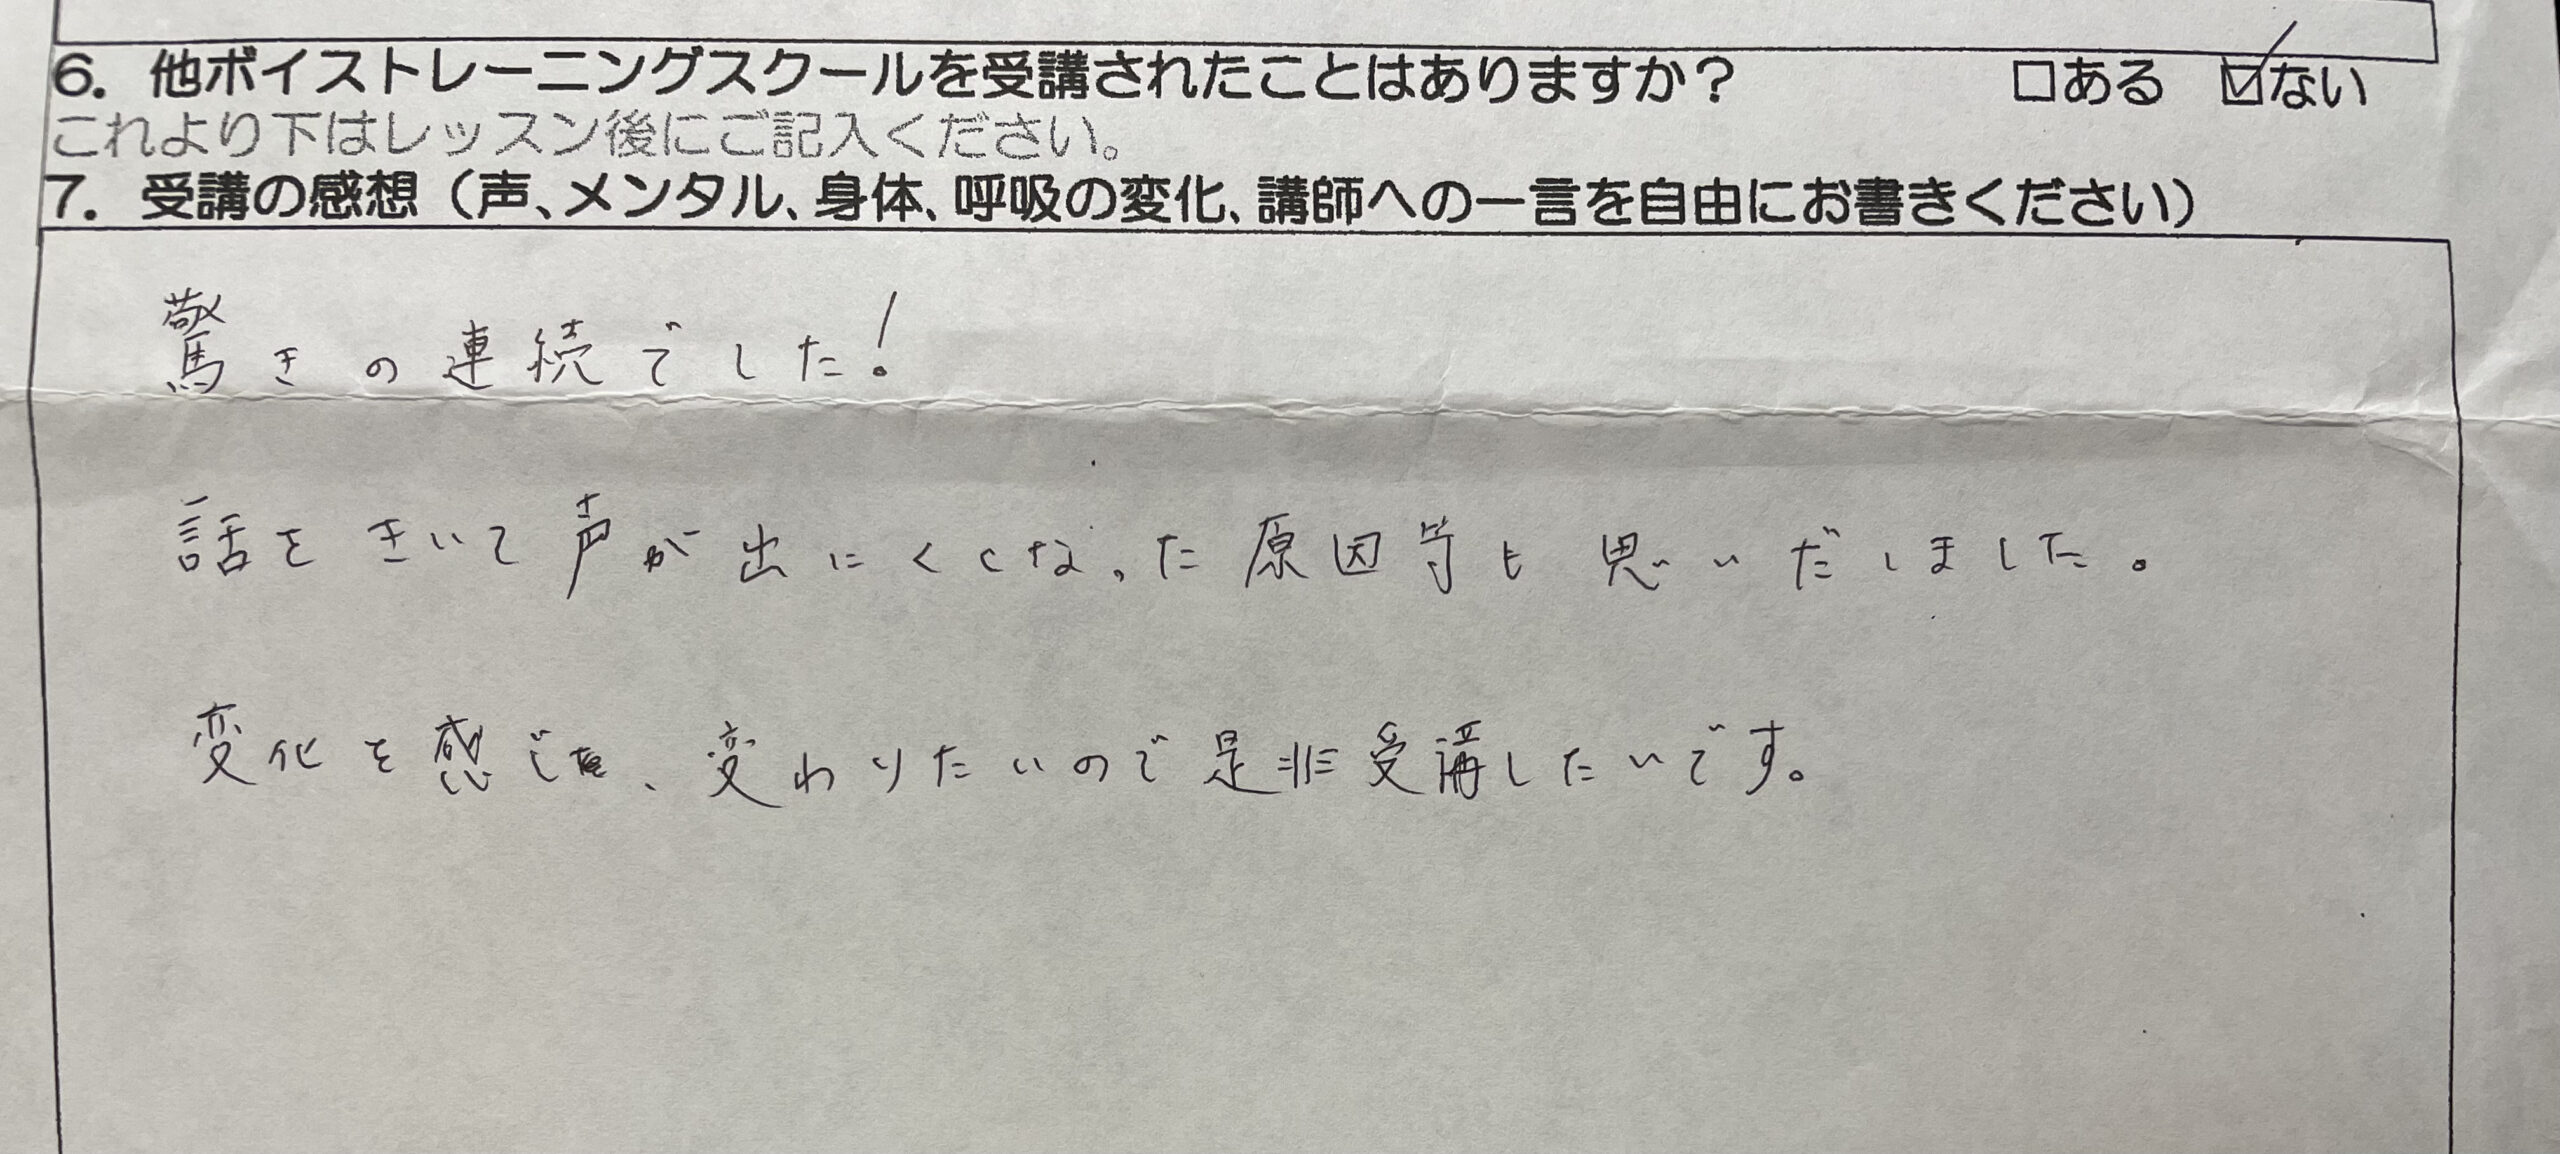 6．他ボイストレーニングスクールを受講されたことはありますか？ □ある ☑ない
これより下はレッスン後にご記入ください。
7．受講の感想（声、メンタル、身体、呼吸の変化、講師への一言を自由にお書きください）
驚きの連続でした！
話をきいて声が出にくくなった原因等も思いだしました。
変化を感じた、変わりたいので是非受講したいです。